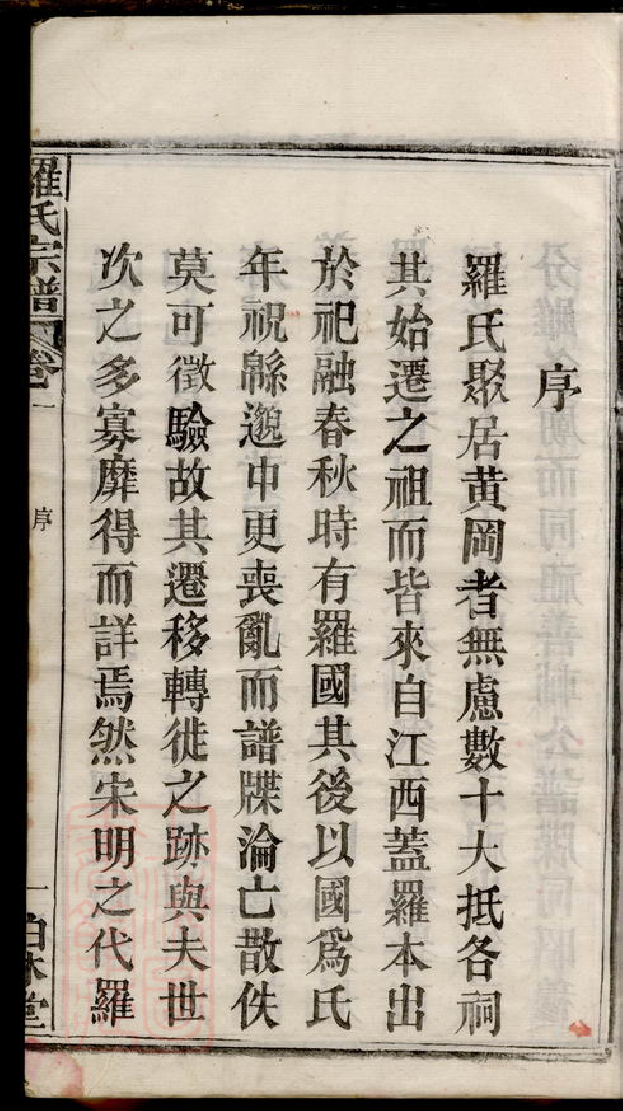 序
羅氏聚居黄岡者無慮數十大抵各祠
其始遷之祖而皆來自江西蓋羅本出
於祀融春秋時有羅國其後以國爲氏
年祝緜邈中更喪亂而譜牒淪亡散佚
莫可徵驗故其遷移轉徙之跡與夫世
次之多寡靡得而詳焉然宋明之代羅
羅氏宗譜
卷一
序
一
柏林堂